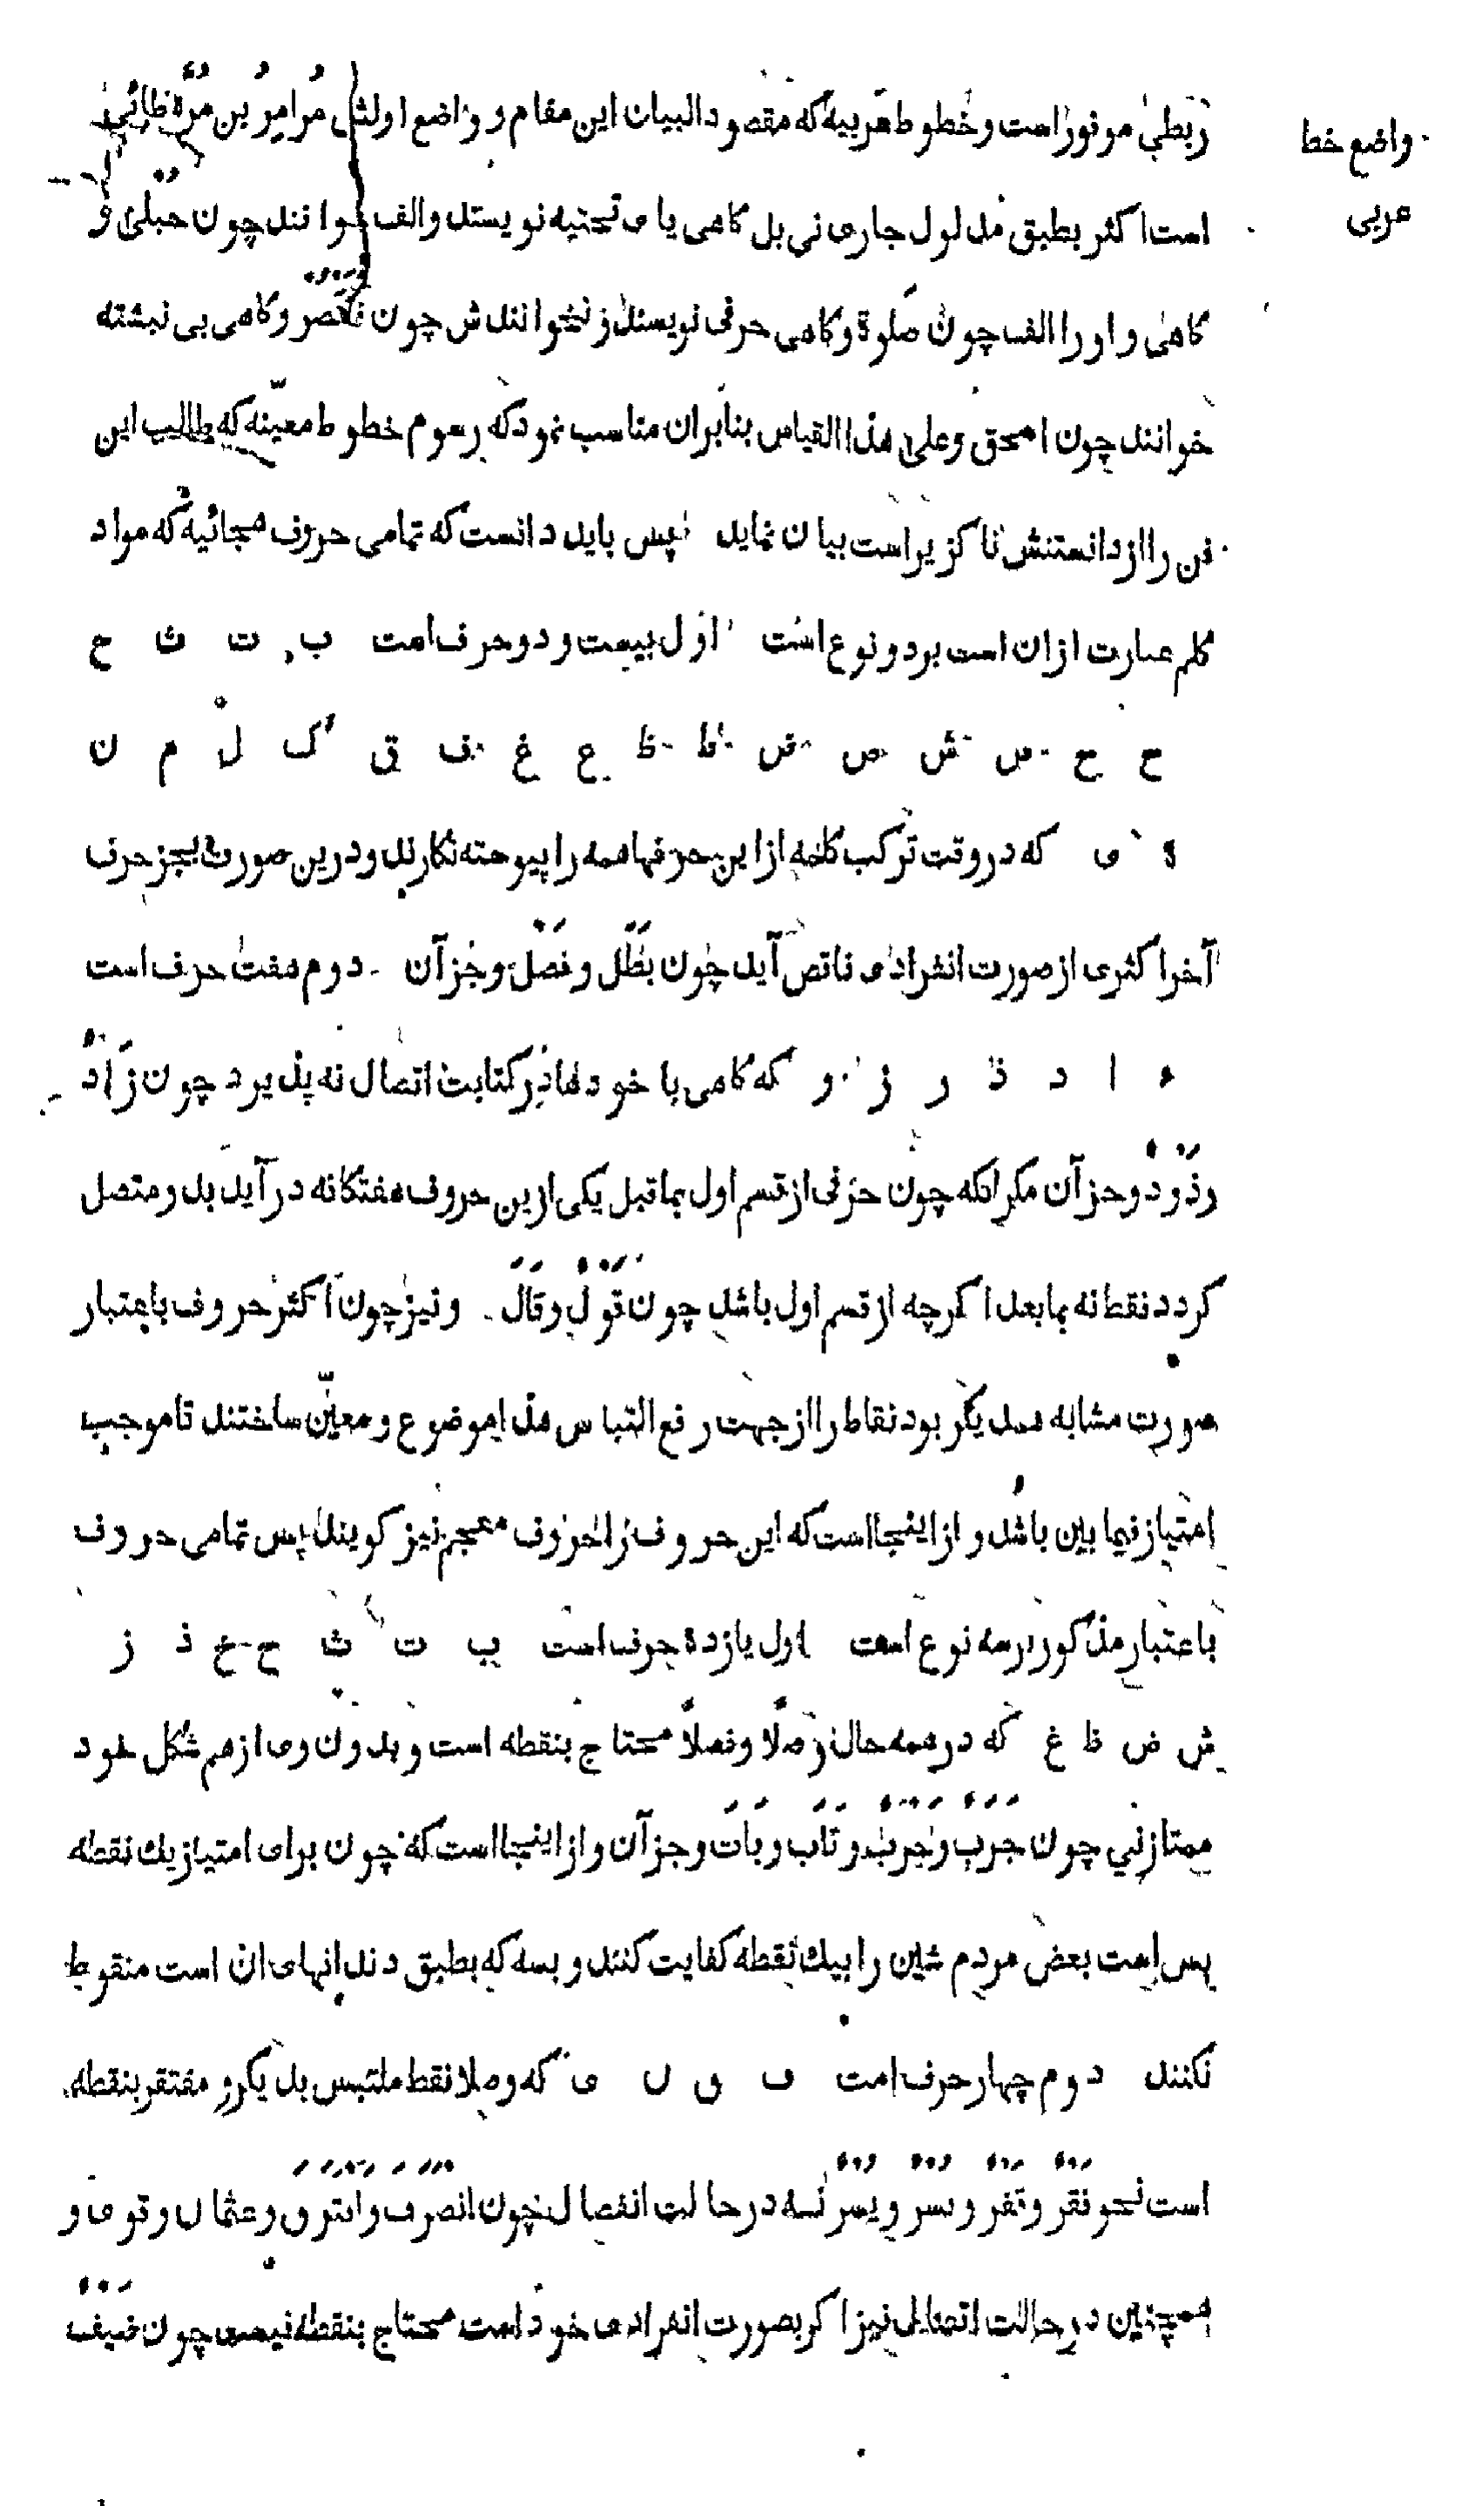 واضع خط
عربی
ربطی موفور است و خطوط عربیه که مقصود البیان این مقام و واضع اولش مُرامِر بن مُرّة طائی
است اکثر بطبق مدلول جاری نی بل کاهی یای تحتیه نویسند والف خوانند چون حبلی و
کاهی واو را الف چون صلوة و کاهی حرفی نویسند و نخوانندش چون و کاهی بی نبشته
خوانند چون اسحق وعلی هذا القیاس بنابران مناسب نمود که رسوم خطوط معیّنه که طالب این
فن را از دانستنش ناکزیر است بیان نماید پس باید دانست که تمامی حروف هجائیه که مواد
کلم عبارت از ان است بر دو نوع است اول بیست و دو حرف است ب ت ث ج
ح خ س ش ص ض ط ظ ع غ ف ق ک ل م ن
ه ی که در وقت ترکب کلمه از این حرفها همه را پیوسته نکارند و درین صورت بجز حرف
آخر اکثری از صورت انفرادی ناقص آید چون بَطَل و فَضْل و جز آن دوم هفت حرف است
ء ا د ذ ر ز و که کاهی با خودها در کتابت اتصال نه پذیرد چون زَادَ
و جز آن مکر انکه چون حرفی از قسم اول بماقبل یکی ازین حروف هفتکانه در آید بدو متصل
کردد فقط نه بمابعد اکرچه از قسم اول باشد چون قَوْل و قَالَ و نیز چون اکثر حروف باعتبار
صورت مشابه همدیکر بود نقاط را از جهت رفع التباس هذا موضوع و معیّن ساختند تا موجب
امتیاز فیما بین باشد و از اینجا است که این حروف را حروف معجم نیز کویند پس تمامی حروف
باعتبار مذکور بر سه نوع است اول یازده حرف است ب ت ث ج خ ذ ز
ش ض ظ غ که در همه حال وصلًا و فصلًا محتاج بنقطه است و بدون وی از هم شکل خود
ممتاز نی چون جرب و خرب و تاب و بات و جز آن و از اینجا است که چون برای امتیاز یك نقطه
بس است بعض مردم شین را بیك نقطه کفایت کنند و بسه که بطبق دندانهای ان است منقوط
نکنند دوم چهار حرف است ف ق ن ی که وصلا فقط ملتبس بدیکر و مفتقر بنقطه
است نحو نقر و تفر و بسر و یسر نه در حالت انفصال چون انصرف و افترق و عثمان و قوی و
همچنین در حالت اتصال نیز اکر بصورت انفرادی خود است محتاج بنقطه نیست چون ضیف